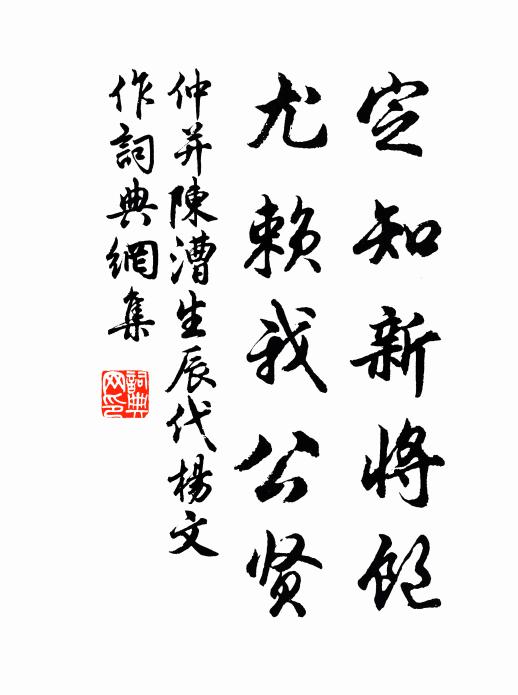 定知新將飽
尤赖我公贤
仲并陳漕生辰代楊文
作詞典網集
詞典
网印